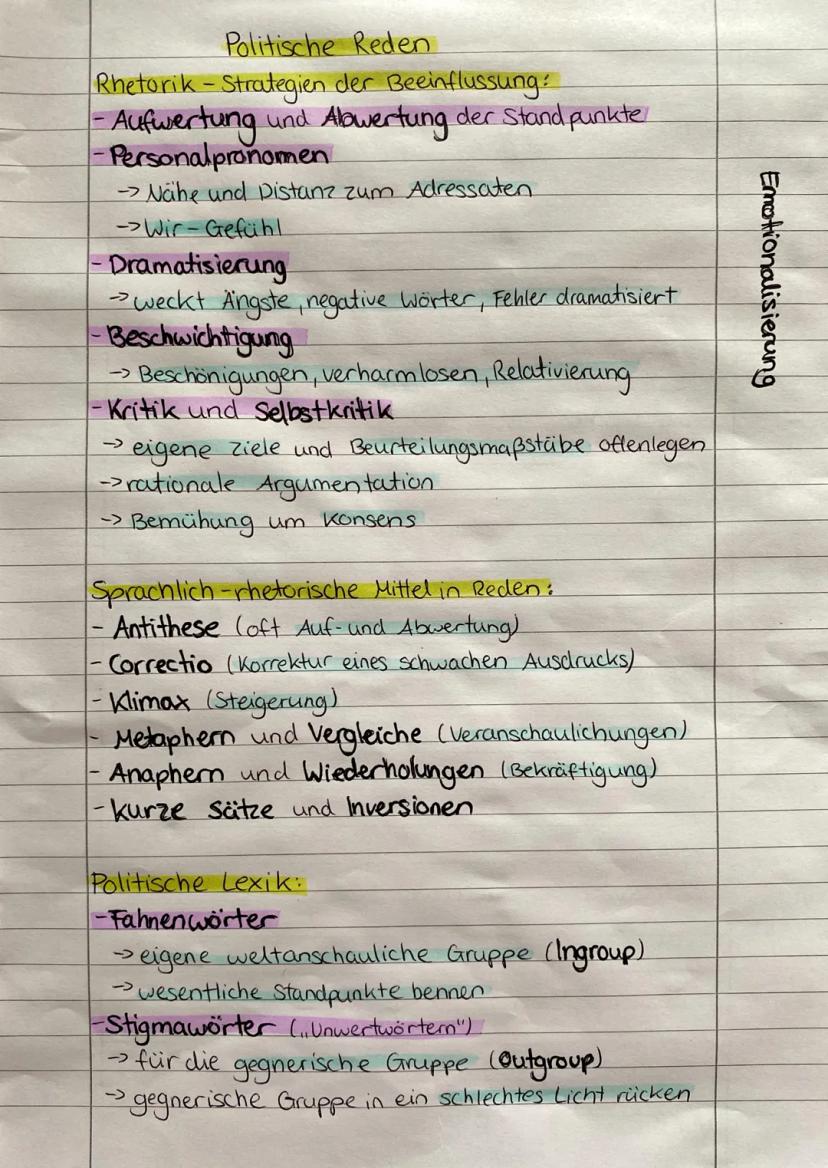 Politische Reden
Rhetorik - Strategien der Beeinflussung:
- Aufwertung und Abwertung der Standpunkte
- Personalpronomen
-> Nähe und Distanz zum Adressaten
-> Wir-Gefühl
- Dramatisierung
-> weckt Ängste, negative Wörter, Fehler dramatisiert
- Beschwichtigung
-> Beschönigungen, verharmlosen, Relativierung
- Kritik und Selbstkritik
-> eigene Ziele und Beurteilungsmaßstäbe offenlegen
-> rationale Argumentation
-> Bemühung um Konsens
Emotionalisierung
Sprachlich-rhetorische Mittel in Reden:
- Antithese (oft Auf- und Abwertung)
- Correctio (Korrektur eines schwachen Ausdrucks)
- Klimax (Steigerung)
- Metaphern und Vergleiche (Veranschaulichungen)
- Anaphern und Wiederholungen (Bekräftigung)
- kurze Sätze und Inversionen
Politische Lexik:
- Fahnenwörter
-> eigene weltanschauliche Gruppe (Ingroup)
-> wesentliche Standpunkte bennen
- Stigmawörter („Unwertwörtern")
-> für die gegnerische Gruppe (Outgroup)
-> gegnerische Gruppe in ein schlechtes Licht rücken